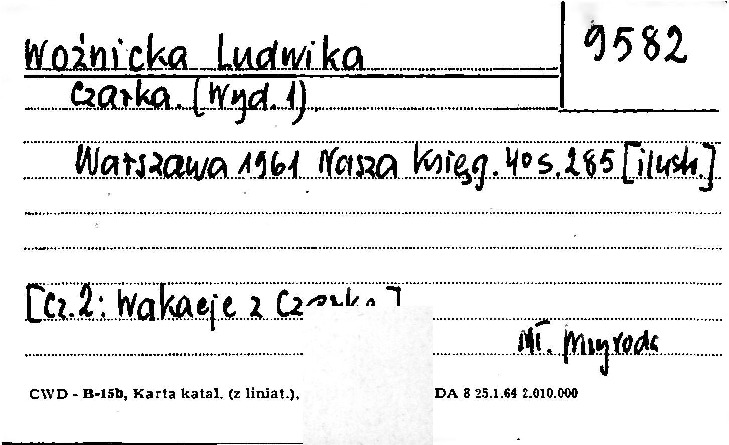 Woźnicka Ludwika
9582
Czarka. (Wyd. 1).
Warszawa 1961 Nasza Księg. 4° s. 285 [ilustr.]
[Cz. 2: Wakacje z Czarką]
Mł.
CWD - B-15b, Karta katal. (z liniat.),
DA 8 25.1.64 2.010.000